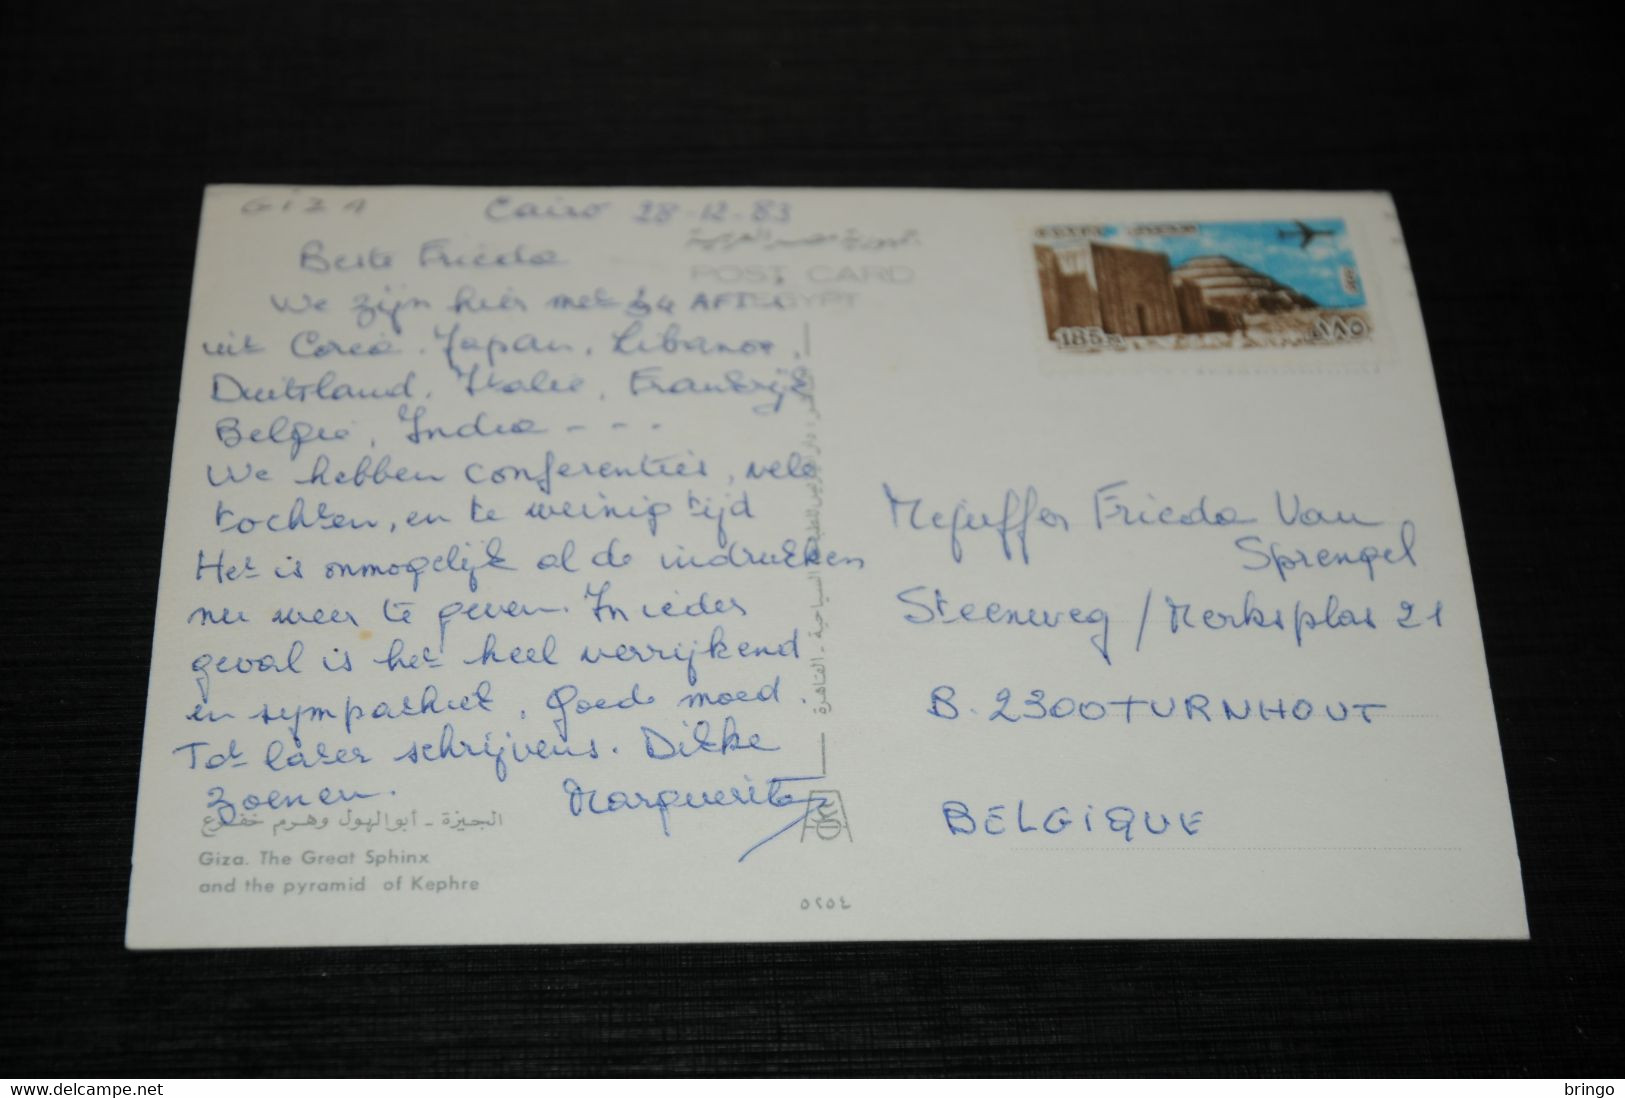 GIZA
Cairo 28-12-83
جمهورية مصر العربية
POST CARD
EGYPT
Beste Frieda
We zijn hier met 34 AFI
uit Corea, Japan, Libanon,
Duitsland, Italie, Frankrijk
België, India - - -
We hebben conferenties, vele
tochten, en te weinig tijd
Het is onmogelijk al de indrukken
nu weer te geven. In ieder
geval is het heel verrijkend
en sympathiek. Goede moed.
Tot later schrijvens. Dikke
zoenen. Marguerite
الجيزة - أبو الهول وهرم خفرع
Giza. The Great Sphinx
and the pyramid of Kephre
٥٢٥٤
185 m
١٨٥
Mejuffer Frieda Van
Sprengel
Steenweg / Merksplas 21
B. 2300 TURNHOUT
BELGIQUE
www.delcampe.net
bringo